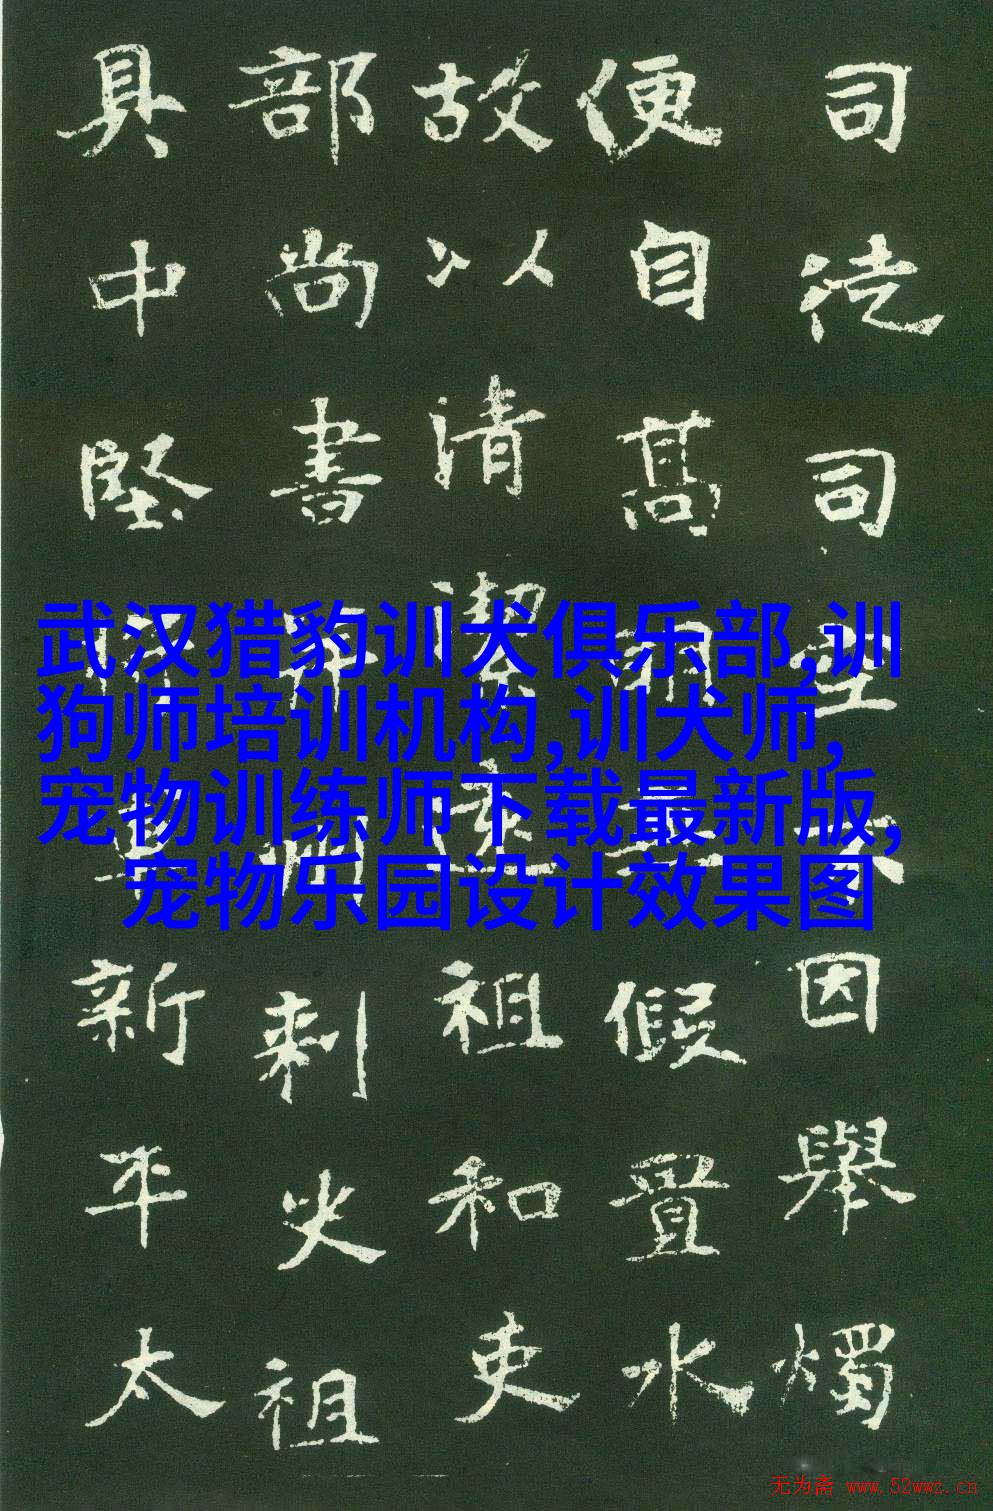 司徒司空因舉燭
便自高假置水
故以清潔祖和吏
部尚書刺史祖
具中堅新平太
武汉猎豹训犬俱乐部,训
狗师培训机构,训犬师,
宠物训练师下载最新版,
宠物乐园设计效果图
无为斋 www.52wwz.cn